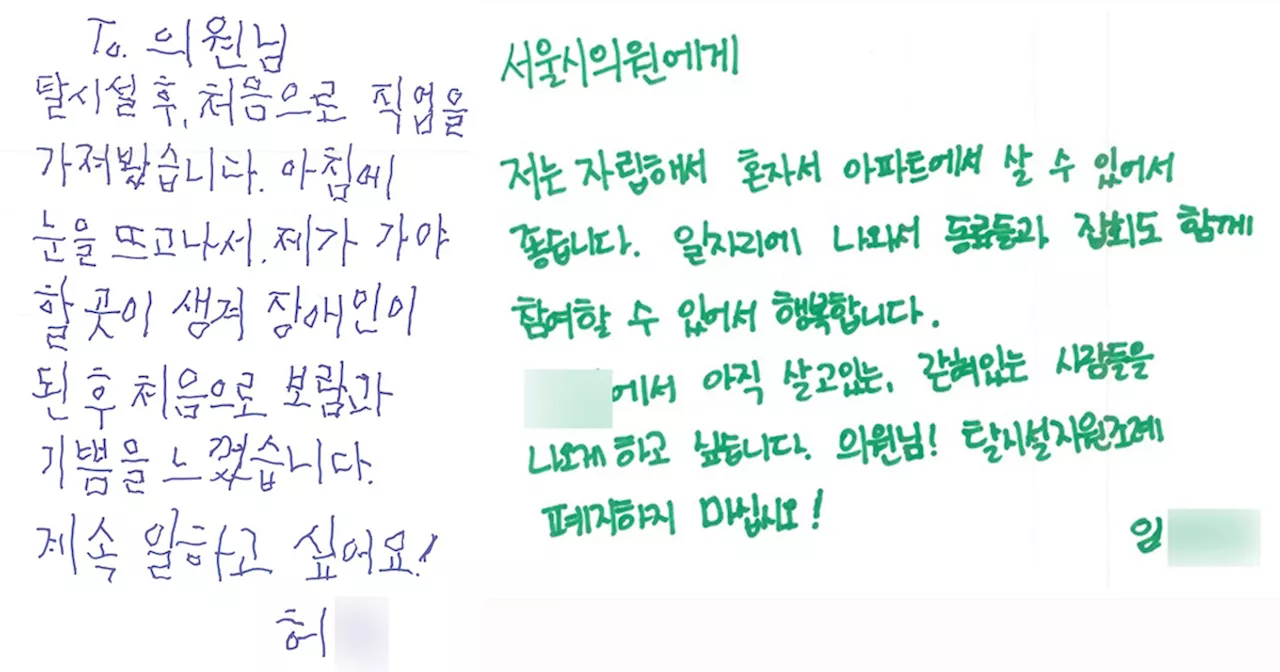 To. 의원님
탈시설 후, 처음으로 직업을
가져봤습니다. 아침에
눈을 뜨고나서. 제가 가야
할 곳이 생겨 장애인이
된 후 처음으로 보람과
기쁨을 느꼈습니다.
계속 일하고 싶어요!
허
서울시의원에게
저는 자립해서 혼자서 아파트에서 살 수 있어서
좋습니다. 일자리에 나와서 동료들과 집회도 함께
참여할 수 있어서 행복합니다.
에서 아직 살고있는, 갇혀있는 사람들을
나오게 하고 싶습니다. 의원님! 탈시설지원조례
폐지하지 마십시오!
임